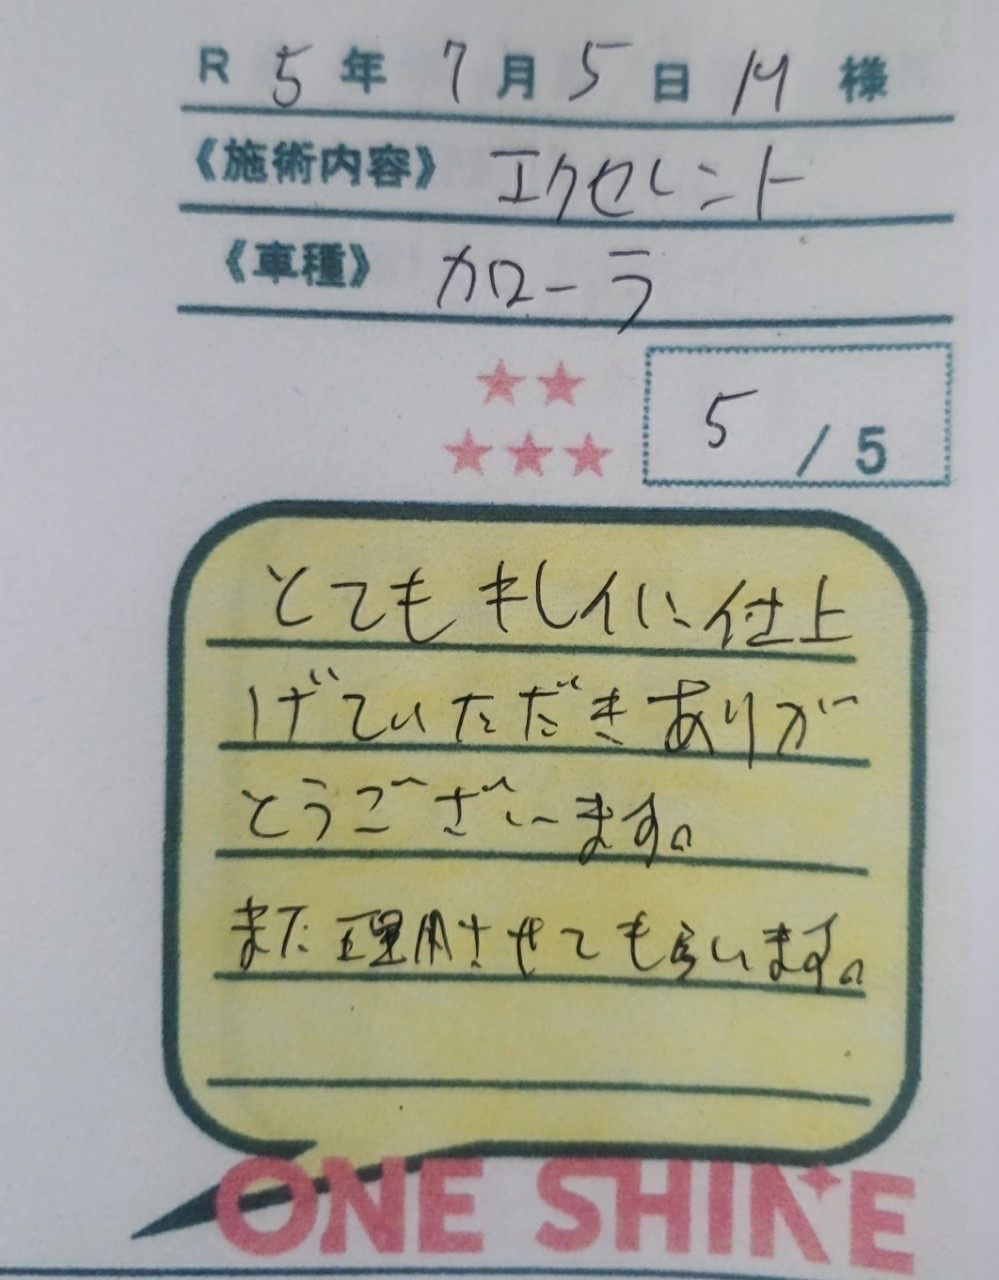 R 5 年 7 月 5 日 M 様
《施術内容》 エクセレント
《車種》 カローラ
5 / 5
とてもキレイに仕上
げていただきありが
とうございます。
また理用させてもらいます。
ONE SHINE